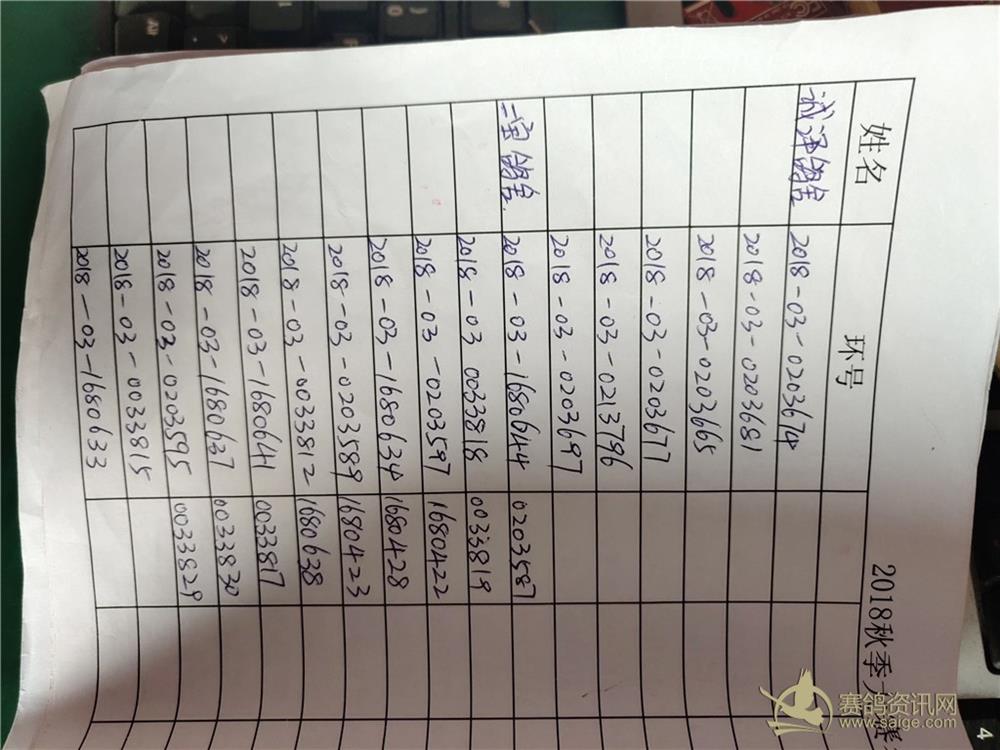 2018秋季
姓名 环号
诚泽鸽舍 2018-03-0203674
2018-03-0203681
2018-03-0203665
2018-03-0203677
2018-03-0213796
2018-03-0203697
二宝鸽舍. 2018-03-1680644 0203587
2018-03 0033818 0033819
2018-03-0203597 1680422
2018-03-1680634 1680428
2018-03-0203589 1680423
2018-03-0033812 1680638
2018-03-1680641 0033817
2018-03-1680637 0033830
2018-03-0203595 0033829
2018-03-0033815
2018-03-1680633
赛鸽资讯网
www.saige.com
4